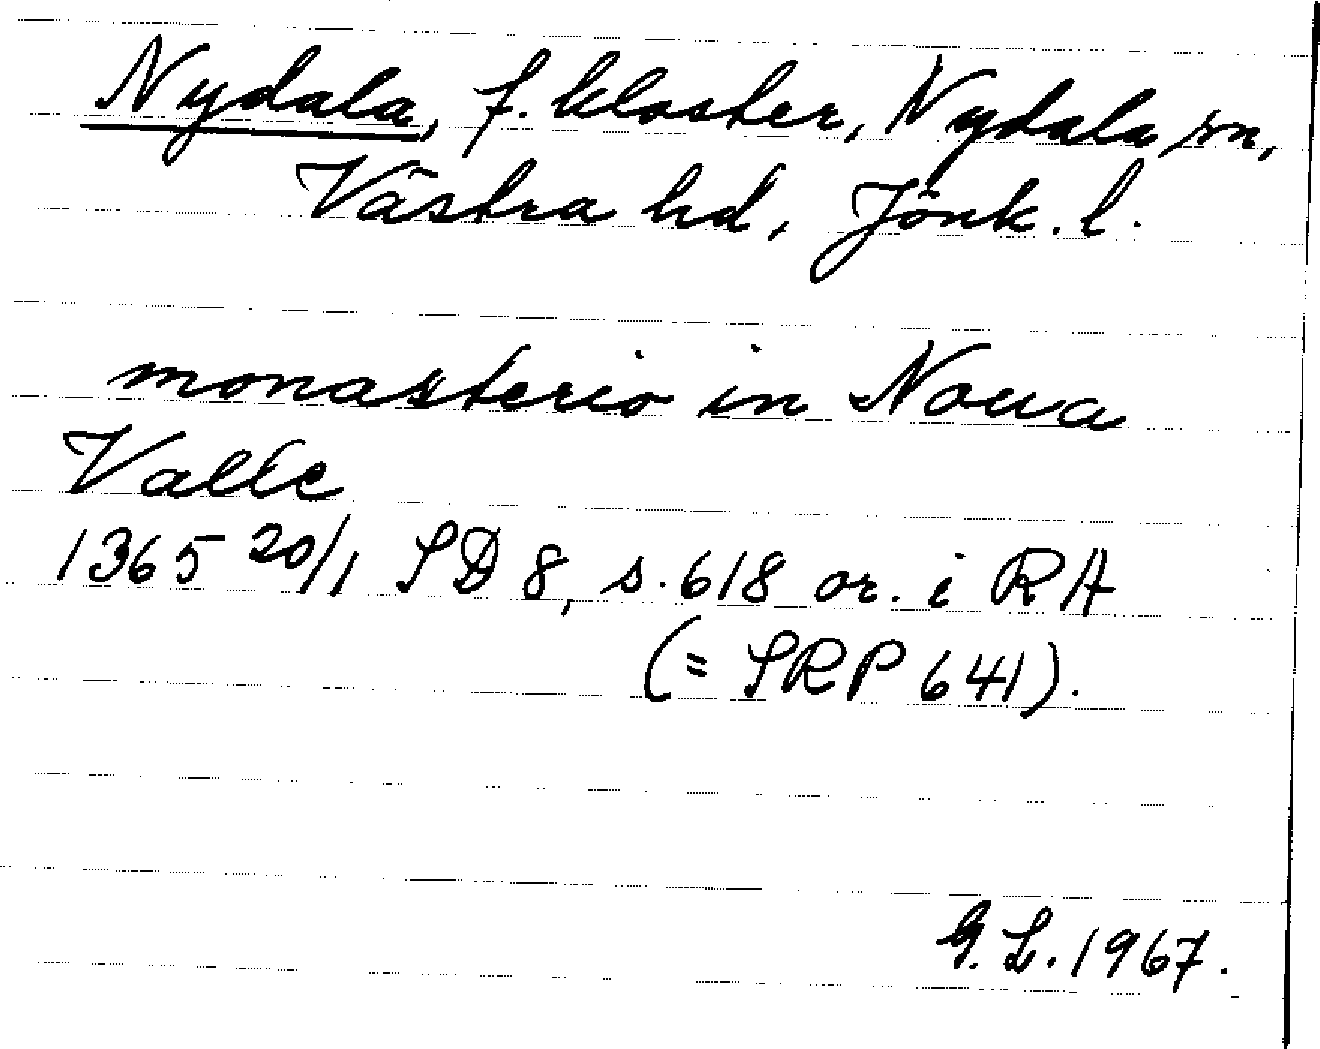 Nydala, f. kloster, Nydala sn,
Västra hd, Jönk. l.
monasterio in Noua
Valle
1365 20/1 SD 8, s. 618 or. i RA
(= SRP 641).
G. L. 1967.